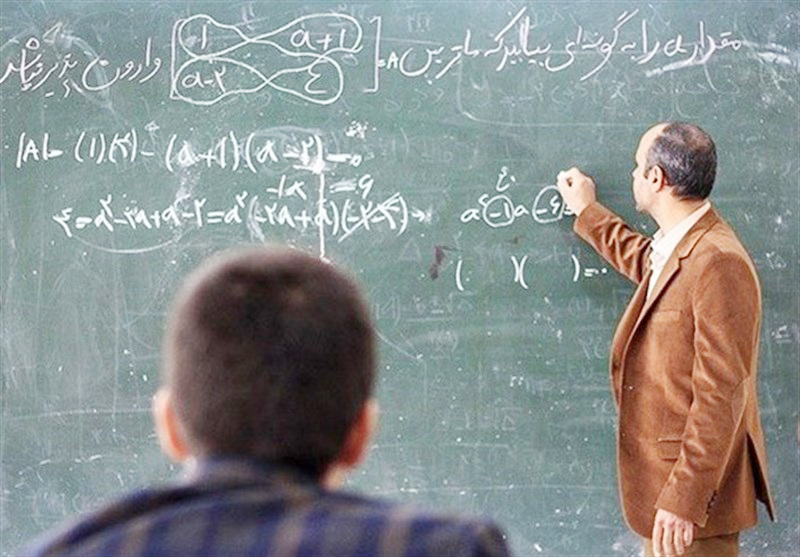 مقدار a را به گونه‌ای بیابید که ماتریس A=[1 a+1 a-2 ۴] وارون پذیر نباشد
|A|= (1)(۴)-(a+1)(a-2)=0
۴=a²-2a+a-2=a²(-2a+a)(-2-۴)→
-1a =6
a² -1 a -6 =0
( )( )=0